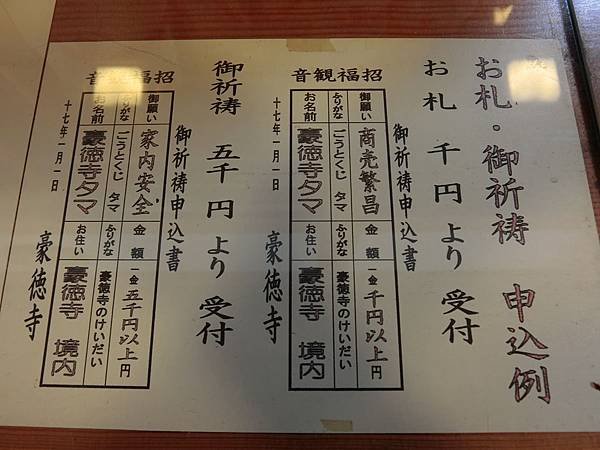 お札・御祈祷 申込例
お札 千円より 受付
音観福招
御祈祷申込書
御願い 商売繁昌 金額 一金 千円以上 円
ふりがな ごうとくじ タマ ふりがな 豪徳寺のけいだい
お名前 豪徳寺タマ お住い 豪徳寺 境内
十七年一月一日 豪徳寺
御祈祷 五千円より 受付
音観福招
御祈祷申込書
御願い 家内安全 金額 一金 五千円以上 円
ふりがな ごうとくじ タマ ふりがな 豪徳寺のけいだい
お名前 豪徳寺タマ お住い 豪徳寺 境内
十七年一月一日 豪徳寺